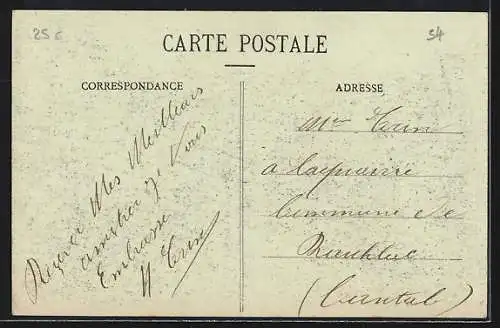 25 c
54
CARTE POSTALE
CORRESPONDANCE
ADRESSE
Recevez Mes Meilleurs
amitiés J' Vous
Embrasse
H Trin
Mme Trin
a Laquairie
Commune de
(Cantal)